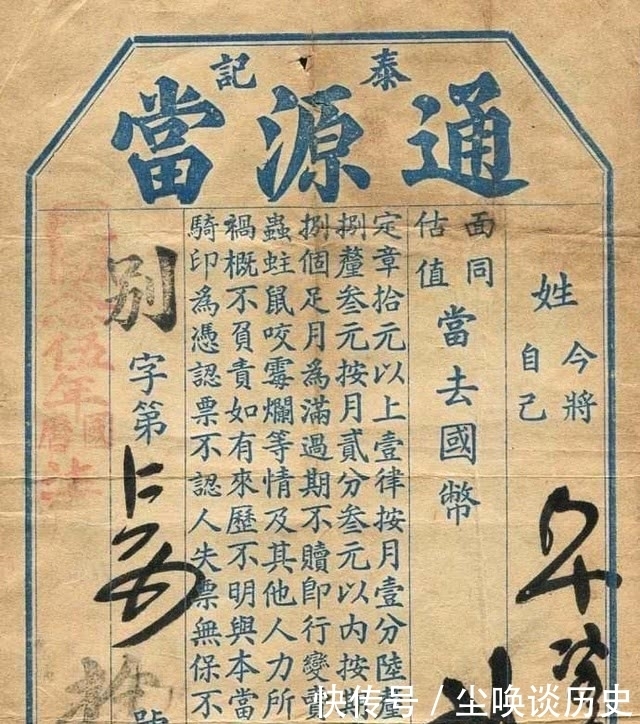 泰記
通源當
姓
今將
自己
面同
估值
當去國幣
定章拾元以上壹律按月壹分陸釐
捌釐叁元按月貳分叁元以內按
捌個足月為滿過期不贖即行變
蟲蛀鼠咬霉爛等情及其他人力所
禍概不負責如有來歷不明與本當
騎印為憑認票不認人失票無保不
別字第
號
伍年
國曆
快传号 / 尘唤谈历史